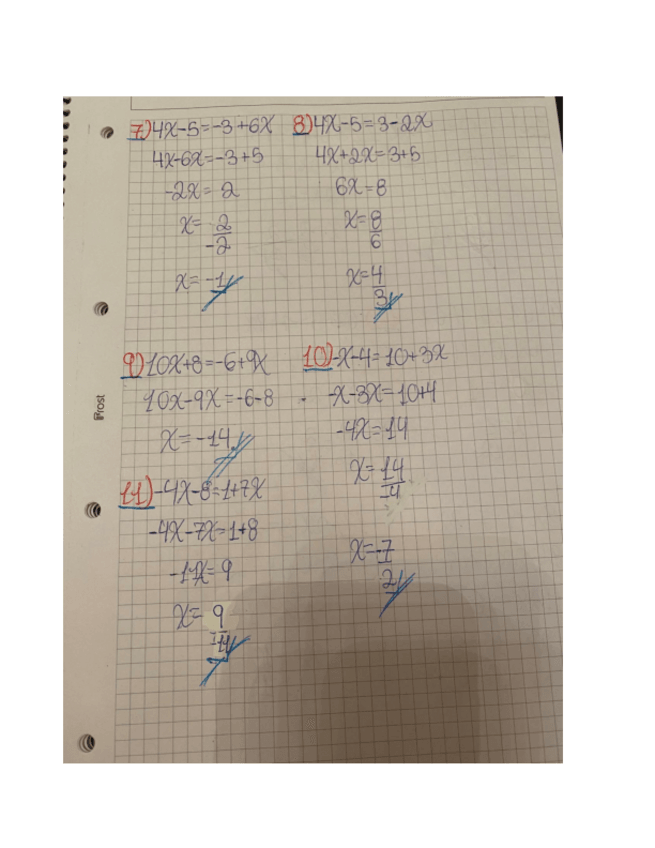 7) 4x-5=-3+6x
4x-6x=-3+5
-2x= 2
x= 2
-2
x= -1
8) 4x-5=3-2x
4x+2x=3+5
6x=8
x=8
6
x=4
3
9) 10x+8=-6+9x
10x-9x=-6-8
x=-14
10) -x-4=10+3x
-x-3x=10+4
-4x=14
x=14
-4
x=-7
2
11) -4x-8=1+7x
-4x-7x=1+8
-11x=9
x= 9
-11
Prost